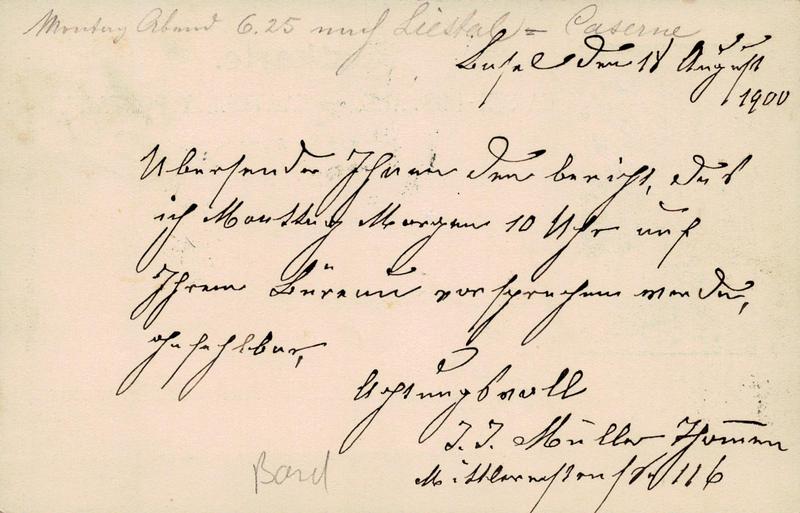 Montag Abend 6.25 nach Liestal = Caserne
Basel den 18 August
1900
Übersende Ihnen den bericht, das
ich Monttag Morgen 10 Uhr auf
Ihrem Büreau vorsprechen werde,
ohnfehlbar,
Achtungsvoll
J. J. Müller Thommen
Mittlerestrasse 116